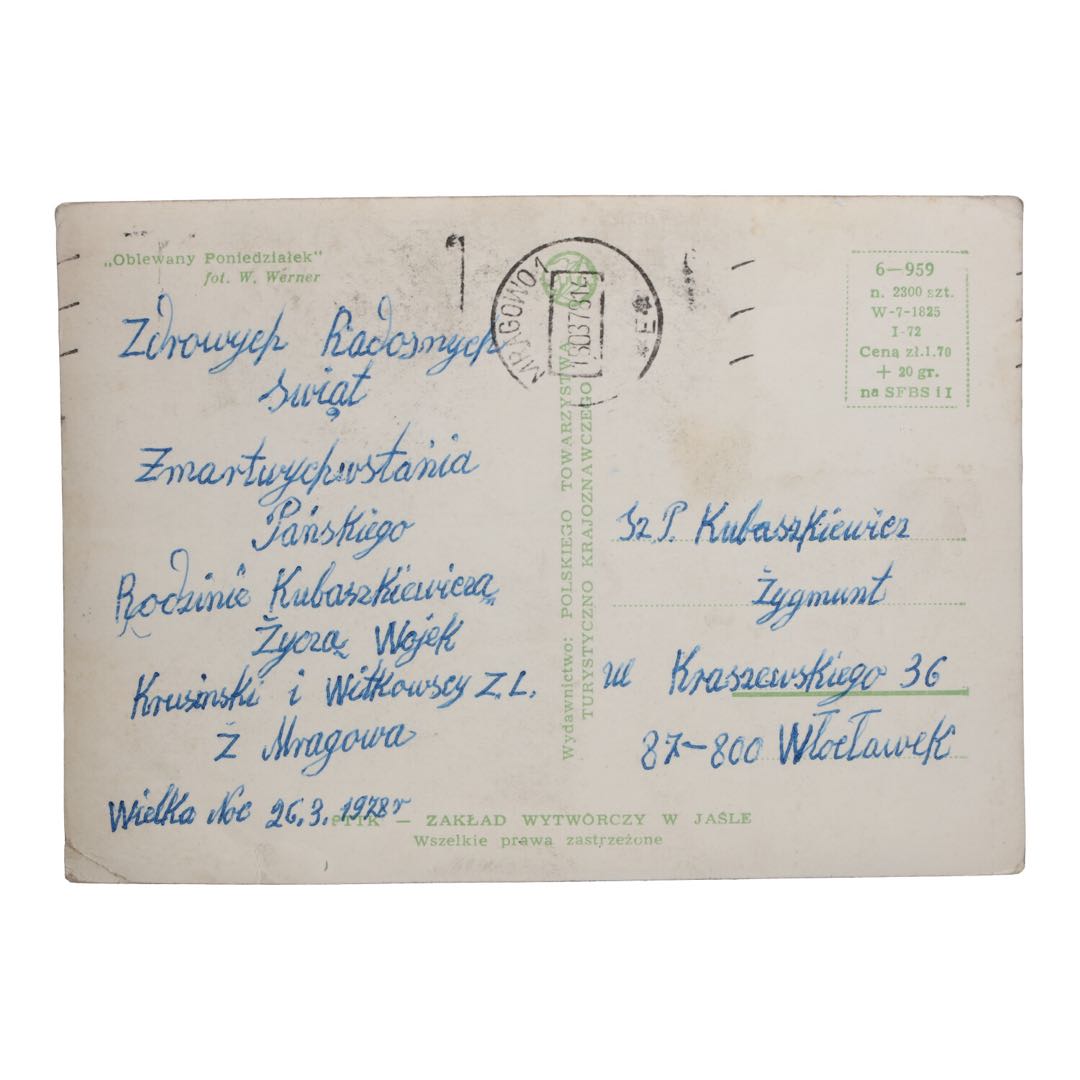 „Oblewany Poniedziałek"
fot. W. Werner
Zdrowych Radosnych
świąt
Zmartwychwstania
Pańskiego
Rodzinie Kubaszkiewicza
Życzą Wojek
Krusinski i Witkowscy Z. L.
Z Mragowa
Wielka Noc 26.3.1978 r
MRĄGOWO 1
E
Wydawnictwo: POLSKIEGO TOWARZYSTWA
TURYSTYCZNO KRAJOZNAWCZEGO
6—959
n. 2300 szt.
W-7-1825
I-72
Cena zł.1.70
+ 20 gr.
na SFBS i I
Sz. P. Kubaszkiewicz
Zygmunt
ul Kraszewskiego 36
87-800 Włocławek
PTTK — ZAKŁAD WYTWÓRCZY W JAŚLE
Wszelkie prawa zastrzeżone